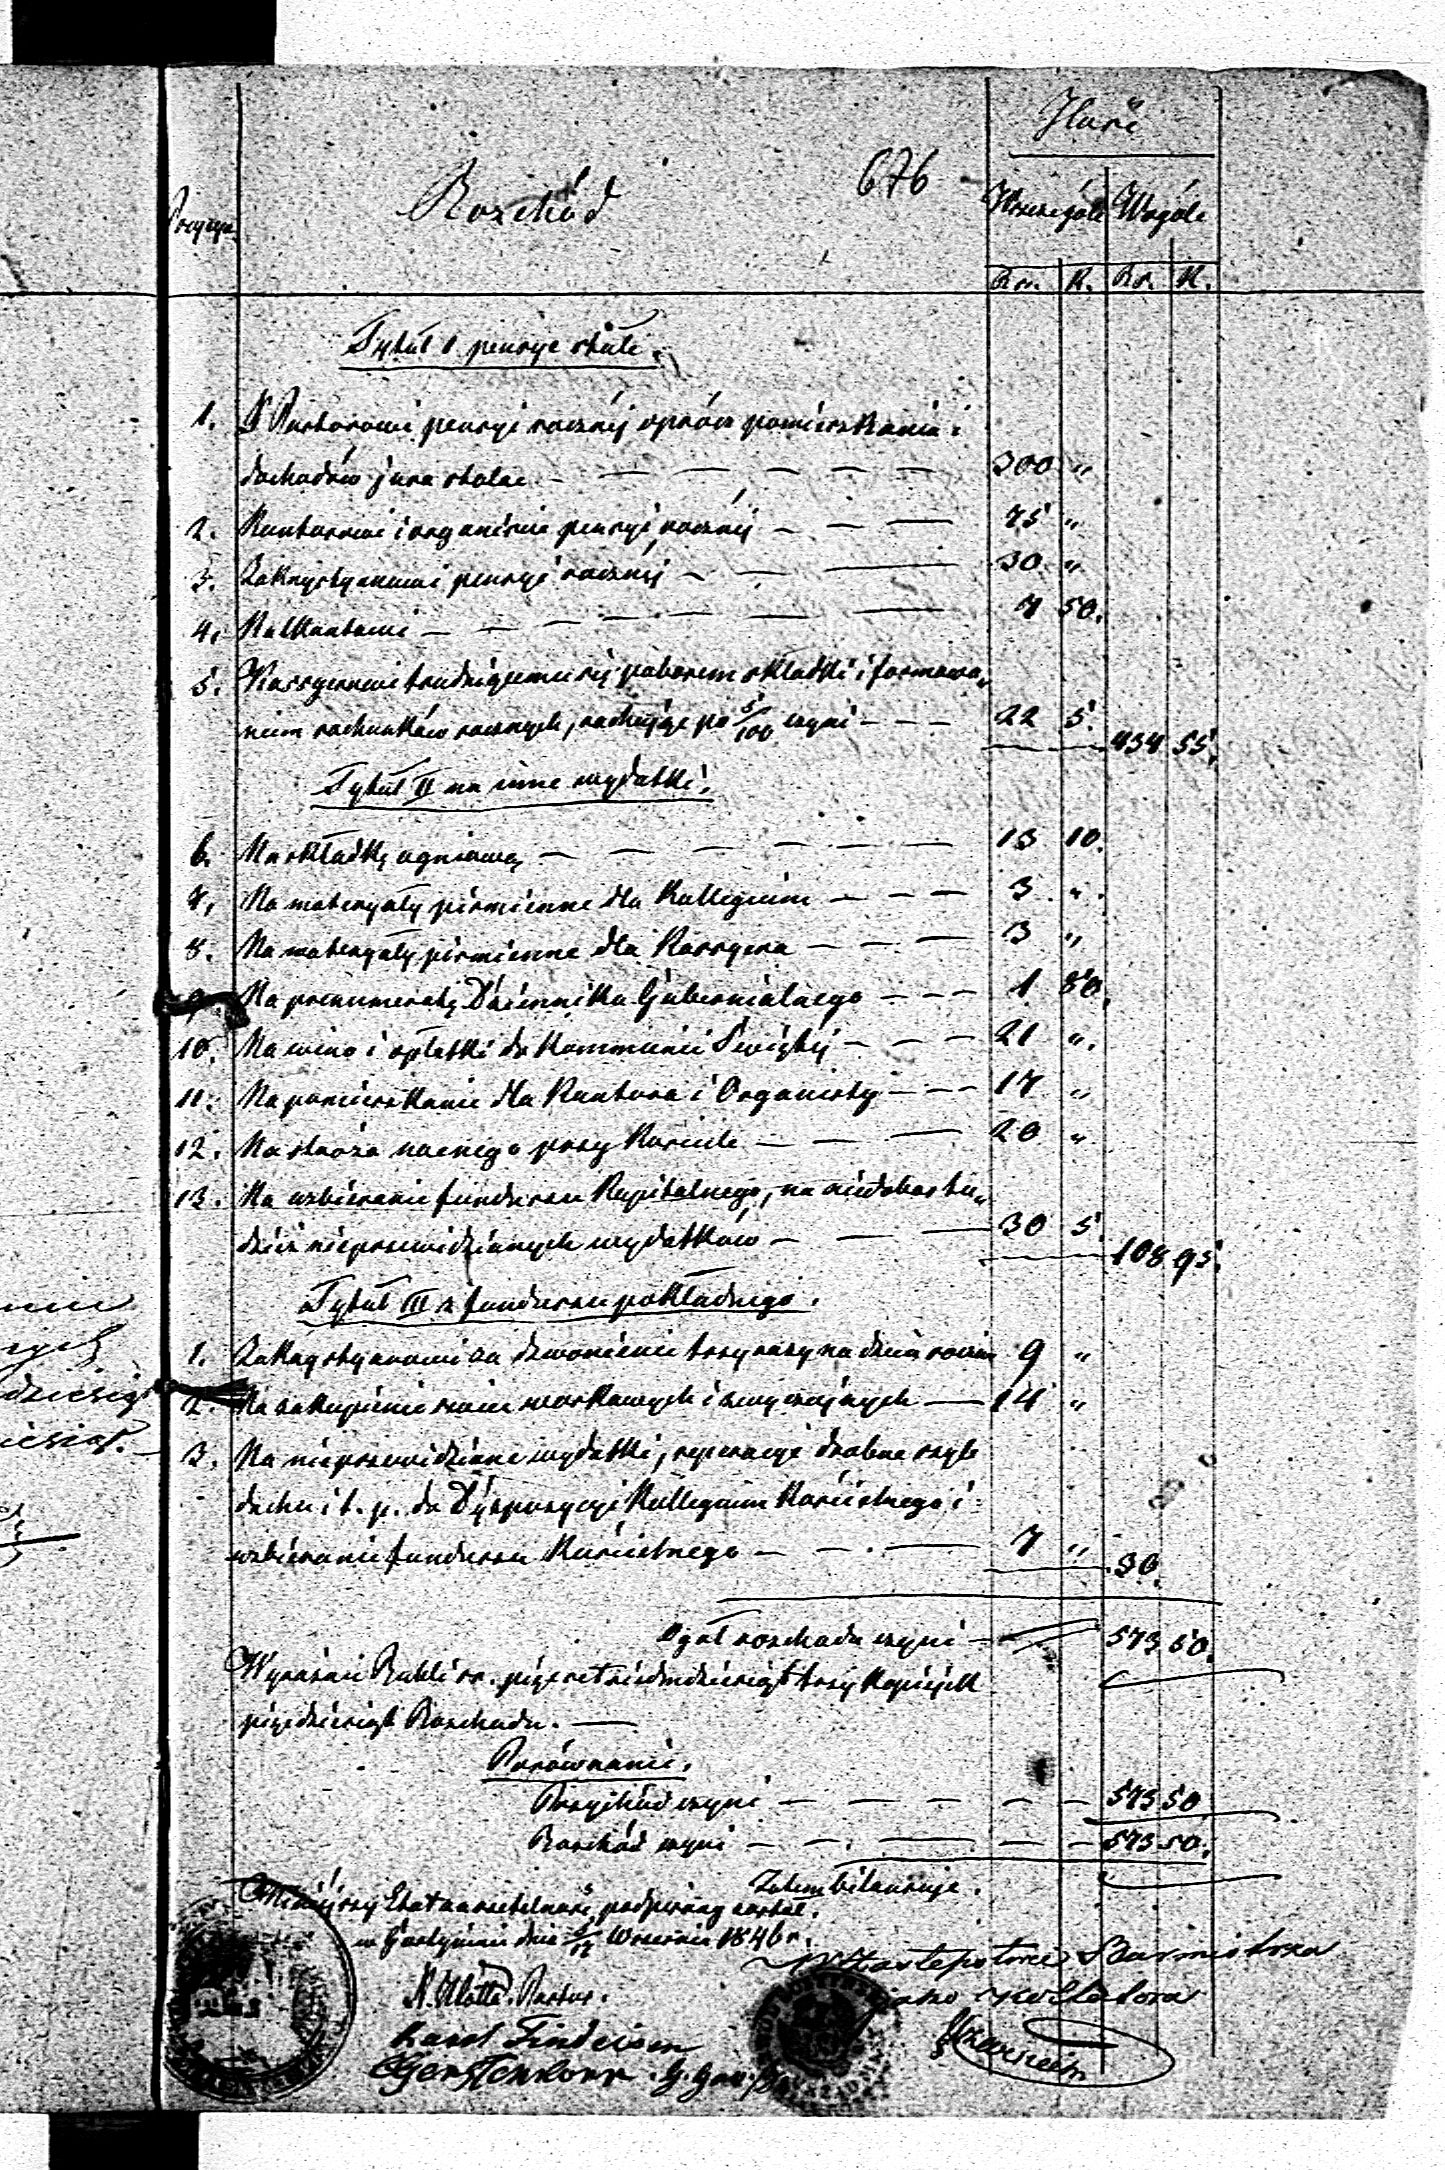 Ilość
676
Rozchód
Pozycya
Wszczególe Wogóle
Rsr. K. Rsr. K.
Tytuł I pensye stałe.
1. X Pastorowi pensyi rocznéj oprócz pomieszkania i
dochodów jura stolae — — — — — 300 "
2. Kantorowi i organiście pensyi rocznéj — — — 75 "
3. Zakrystyanowi pensyi rocznéj — — — 30 "
4. Kalkantowi — — — — — — 7 50.
5. Kassyerowi trudniącemu się poborem składki i formowa„
niem rachunków rocznych, rachując po 5/100 czyni — — — 22 5.
434 55.
Tytuł II na inne wydatki.
6. Na składkę ogniową — — — — — — 13 10.
7. Na materyały piśmienne dla Kollegium — — — 3 ".
8. Na materyały piśmienne dla Kassyera — — — 3 "
9. Na prenumeratę Dziennika Gubernialnego — — — 1 80.
10. Na wino i opłatki do Kommunii Świętéj — — — 21 ".
11. Na pomieszkanie dla Kantora i Organisty — — — 17 "
12. Na stróża nocnego przy Kościele — — — 20 "
13. Na uzbieranie funduszu Kapitalnego, na niedobory tu„
dzież nieprzewidzianych wydatków — — — 30 5.
108 95.
Tytuł III z funduszu pokładnego.
1. Zakrystyanowi za dzwonienie trzy razy na dzień rocznie 9 "
2. Na zakupienie świec woskowych i zwyczajnych — 14 "
3. Na nieprzewidziane wydatki, reperacye drobne szyb
dachu i t. p. do Dyspozycyi Kollegium Kościelnego i
uzbieranie funduszu Kościelnego — — — 7 "
30.
Ogół rozchodu czyni — 573 50.
Wyraźnie Rubli sr. pięćset siedmdziesiąt trzy kopiejek
pięćdziesiąt Rozchodu. —
Porównanie.
Przychód czyni — — — — — — 573 50
Rozchód czyni — — — — — 573 50.
Zatem bilansuje.
Niniejszy Etat podpisany został.
w Gostyninie dnia 5/17 Września 1846 r.
Zastępstwie Burmistrza
jako
Pastor.
Karol Findeisen